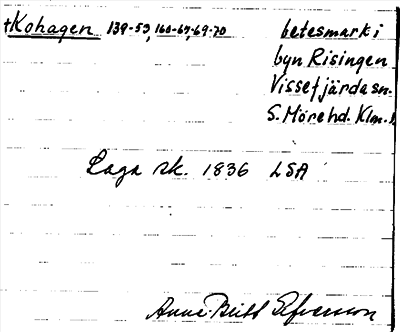 +Kohagen 139-53, 160-67, 69-70 betesmark i
byn Risingen
Vissefjärda sn.
S. Möre hd. Klm. l.
Laga sk. 1836 LSA
Anne Britt Elfversson